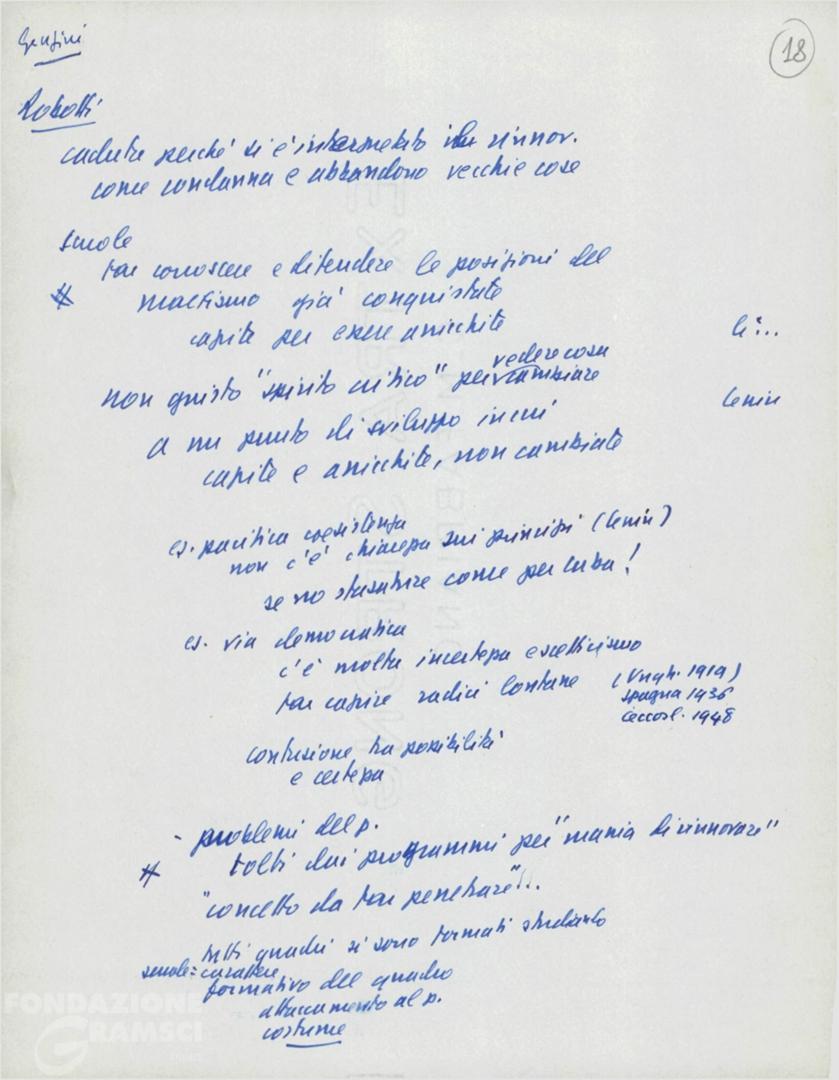 18
Robotti
caduta perché si è interpretato il rinnov.
come condanna e abbandono vecchie cose
scuole
far conoscere e difendere le posizioni del
# marxismo già conquistate
capite per essere arricchite
li...
non giusto "spirito critico" per vedere cosa
cambiare
Lenin
a un punto di sviluppo in cui
capite e arricchite, non cambiate
es. pacifica coesistenza
non c'è chiarezza sui principi (Lenin)
se no sfasature come per Cuba!
es. via democratica
c'è molta incertezza e scetticismo
far capire radici lontane (Ungh. 1919)
Spagna 1936
Cecosl. 1948
confusione tra possibilità
e certezza
- problemi del p.
# tolti dai programmi per "mania di rinnovare"
"concetto da far penetrare"!..
tutti quadri si sono formati studiando
scuole = carattere
formativo del quadro
attaccamento al p.
costume
FONDAZIONE
GRAMSCI